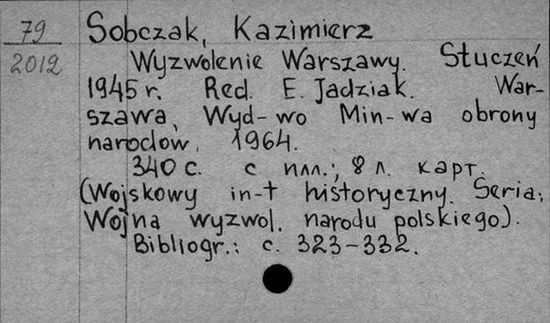 79
2012
Sobczak, Kazimierz
Wyzwolenie Warszawy. Stuczeń
1945 r. Red. E. Jadziak. War-
szawa, Wyd-wo Min-wa obrony
narodow. 1964.
340 с. с илл.; 8 л. карт.
(Wojskowy in-t historyczny. Seria:
Wojna wyzwol. narodu polskiego).
Bibliogr.: с. 323-332.